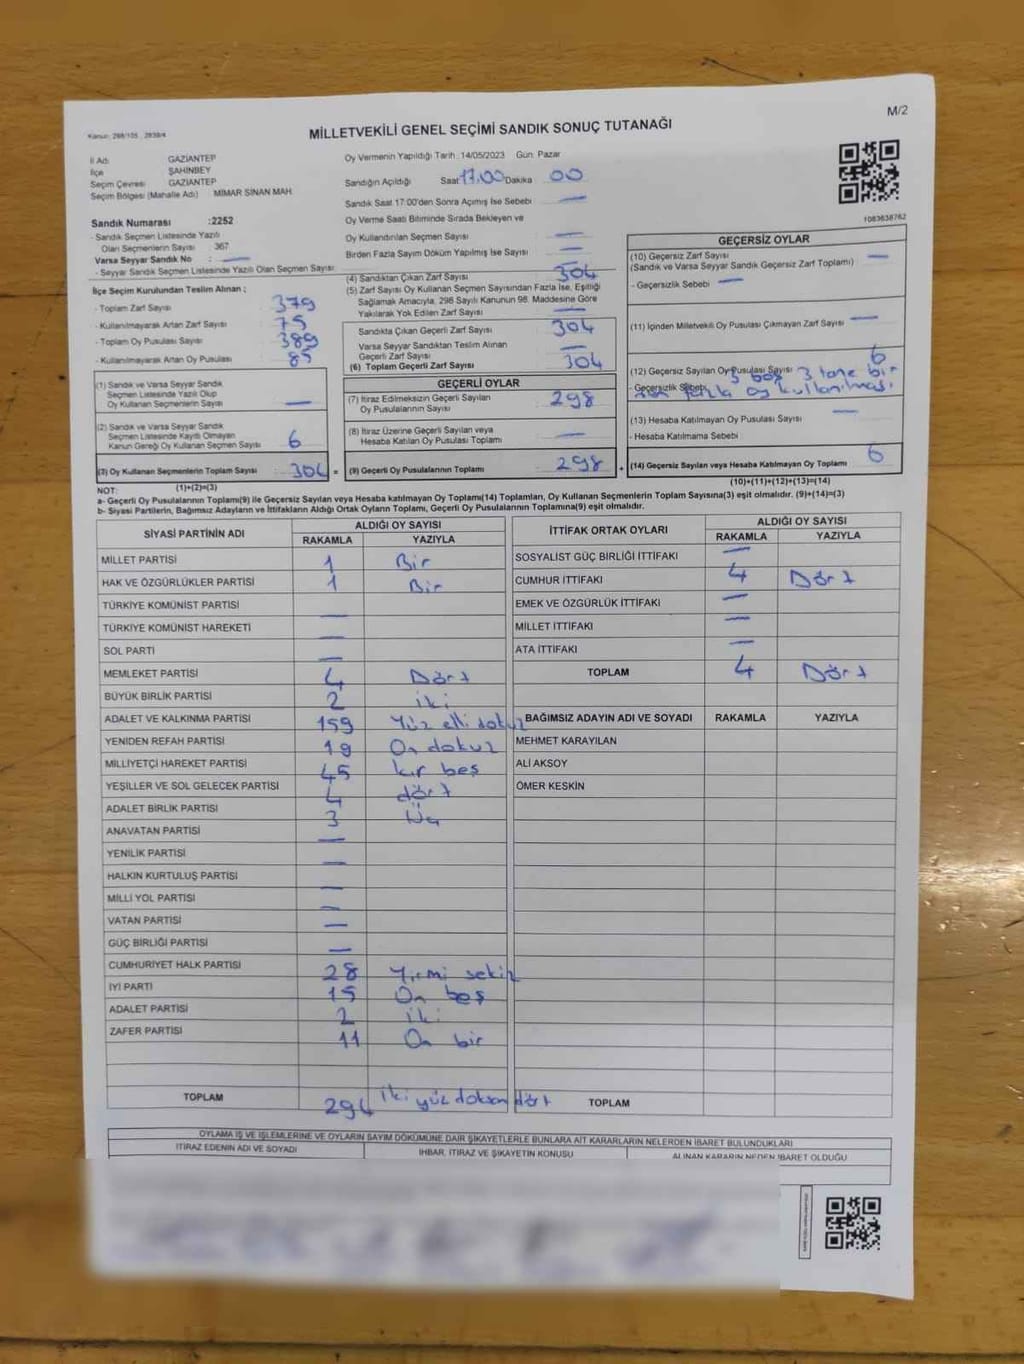 Kanun: 298/105 , 2839/4
M/2
MİLLETVEKİLİ GENEL SEÇİMİ SANDIK SONUÇ TUTANAĞI
İl Adı GAZİANTEP
İlçe ŞAHİNBEY
Seçim Çevresi GAZİANTEP
Seçim Bölgesi (Mahalle Adı) MİMAR SİNAN MAH.
Oy Vermenin Yapıldığı Tarih :14/05/2023 Gün: Pazar
Sandığın Açıldığı Saat 17.00 Dakika 00
Sandık Saat 17:00'den Sonra Açılmış İse Sebebi —
Oy Verme Saati Bitiminde Sırada Bekleyen ve
Oy Kullandırılan Seçmen Sayısı —
Birden Fazla Sayım Döküm Yapılmış İse Sayısı —
1083638762
Sandık Numarası :2252
- Sandık Seçmen Listesinde Yazılı
Olan Seçmenlerin Sayısı 367
Varsa Seyyar Sandık No : —
- Seyyar Sandık Seçmen Listesinde Yazılı Olan Seçmen Sayısı:
İlçe Seçim Kurulundan Teslim Alınan ;
- Toplam Zarf Sayısı 379
- Kullanılmayarak Artan Zarf Sayısı 75
- Toplam Oy Pusulası Sayısı 389
- Kullanılmayarak Artan Oy Pusulası 85
(1) Sandık ve Varsa Seyyar Sandık
Seçmen Listesinde Yazılı Olup
Oy Kullanan Seçmenlerin Sayısı —
(2) Sandık ve Varsa Seyyar Sandık
Seçmen Listesinde Kayıtlı Olmayan
Kanun Gereği Oy Kullanan Seçmen Sayısı 6
(3) Oy Kullanan Seçmenlerin Toplam Sayısı 304 =
(1)+(2)=(3)
(4) Sandıktan Çıkan Zarf Sayısı 304
(5) Zarf Sayısı Oy Kullanan Seçmen Sayısından Fazla İse, Eşitliği
Sağlamak Amacıyla, 298 Sayılı Kanunun 98. Maddesine Göre
Yakılarak Yok Edilen Zarf Sayısı —
Sandıkta Çıkan Geçerli Zarf Sayısı 304
Varsa Seyyar Sandıktan Teslim Alınan
Geçerli Zarf Sayısı —
(6) Toplam Geçerli Zarf Sayısı 304
GEÇERLİ OYLAR
(7) İtiraz Edilmeksizin Geçerli Sayılan
Oy Pusulalarının Sayısı 298
(8) İtiraz Üzerine Geçerli Sayılan veya
Hesaba Katılan Oy Pusulası Toplamı —
(9) Geçerli Oy Pusulalarının Toplamı 298 +
GEÇERSİZ OYLAR
(10) Geçersiz Zarf Sayısı —
(Sandık ve Varsa Seyyar Sandık Geçersiz Zarf Toplamı)
- Geçersizlik Sebebi —
(11) İçinden Milletvekili Oy Pusulası Çıkmayan Zarf Sayısı —
(12) Geçersiz Sayılan Oy Pusulası Sayısı 6
- Geçersizlik Sebebi 3 boş 3 tane bir
den fazla oy kullanılması
(13) Hesaba Katılmayan Oy Pusulası Sayısı —
- Hesaba Katılmama Sebebi
(14) Geçersiz Sayılan veya Hesaba Katılmayan Oy Toplamı 6
(10)+(11)+(12)+(13)=(14)
NOT:
a- Geçerli Oy Pusulalarının Toplamı(9) ile Geçersiz Sayılan veya Hesaba katılmayan Oy Toplam(14) Toplamları, Oy Kullanan Seçmenlerin Toplam Sayısına(3) eşit olmalıdır. (9)+(14)=(3)
b- Siyasi Partilerin, Bağımsız Adayların ve İttifakların Aldığı Ortak Oyların Toplamı, Geçerli Oy Pusulalarının Toplamına(9) eşit olmalıdır.
SİYASİ PARTİNİN ADI ALDIĞI OY SAYISI
RAKAMLA YAZIYLA
MİLLET PARTİSİ 1 Bir
HAK VE ÖZGÜRLÜKLER PARTİSİ 1 Bir
TÜRKİYE KOMÜNİST PARTİSİ —
TÜRKİYE KOMÜNİST HAREKETİ —
SOL PARTİ —
MEMLEKET PARTİSİ 4 Dört
BÜYÜK BİRLİK PARTİSİ 2 iki
ADALET VE KALKINMA PARTİSİ 159 Yüz elli dokuz
YENİDEN REFAH PARTİSİ 19 On dokuz
MİLLİYETÇİ HAREKET PARTİSİ 45 kır beş
YEŞİLLER VE SOL GELECEK PARTİSİ 4 dört
ADALET BİRLİK PARTİSİ 3 Üç
ANAVATAN PARTİSİ —
YENİLİK PARTİSİ —
HALKIN KURTULUŞ PARTİSİ —
MİLLİ YOL PARTİSİ —
VATAN PARTİSİ —
GÜÇ BİRLİĞİ PARTİSİ —
CUMHURİYET HALK PARTİSİ 28 Yirmi sekiz
İYİ PARTİ 15 On beş
ADALET PARTİSİ 2 iki
ZAFER PARTİSİ 11 On bir
TOPLAM 294 iki yüz doksan dört
İTTİFAK ORTAK OYLARI ALDIĞI OY SAYISI
RAKAMLA YAZIYLA
SOSYALİST GÜÇ BİRLİĞİ İTTİFAKI —
CUMHUR İTTİFAKI 4 Dört
EMEK VE ÖZGÜRLÜK İTTİFAKI —
MİLLET İTTİFAKI —
ATA İTTİFAKI —
TOPLAM 4 Dört
BAĞIMSIZ ADAYIN ADI VE SOYADI RAKAMLA YAZIYLA
MEHMET KARAYILAN
ALİ AKSOY
ÖMER KESKİN
TOPLAM
OYLAMA İŞ VE İŞLEMLERİNE VE OYLARIN SAYIM DÖKÜMÜNE DAİR ŞİKAYETLERLE BUNLARA AİT KARARLARIN NELERDEN İBARET BULUNDUKLARI
İTİRAZ EDENİN ADI VE SOYADI İHBAR, İTİRAZ VE ŞİKAYETİN KONUSU ALINAN KARARIN NEDEN İBARET OLDUĞU